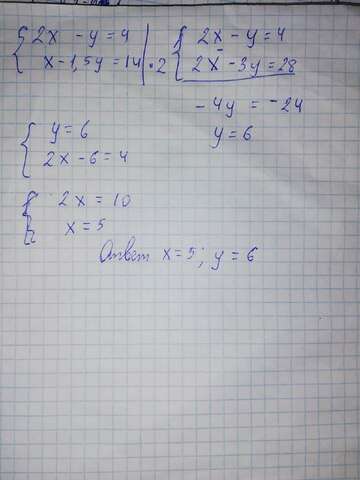 2x - y = 4 | 2x - y = 4
x - 1,5y = 14 | · 2 2x - 3y = 28
- 4y = -24
y = 6
y = 6
2x - 6 = 4
2x = 10
x = 5
Ответ x = 5; y = 6